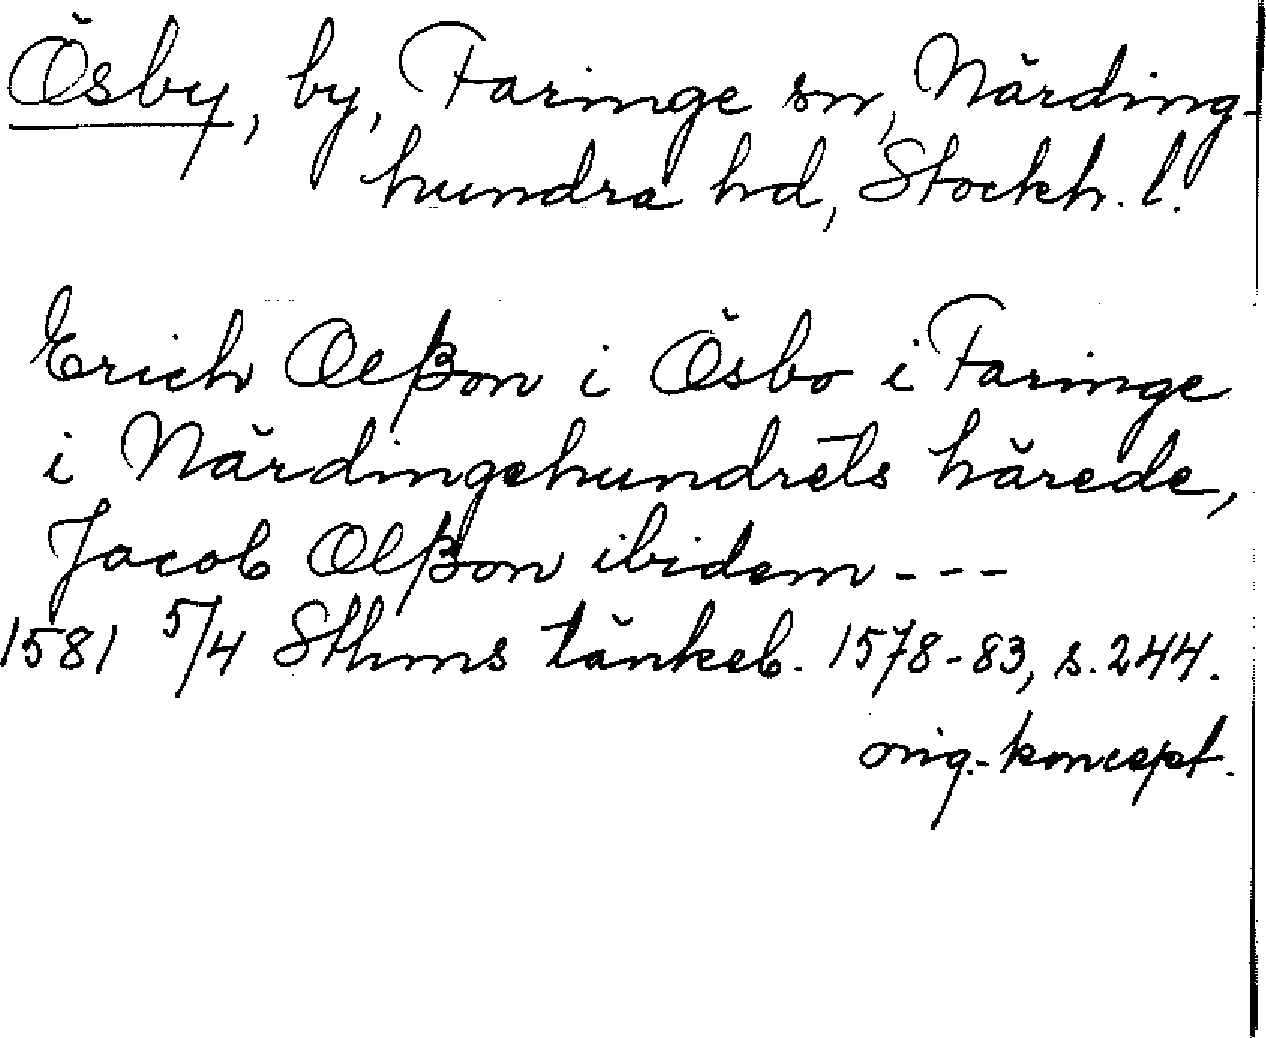 Ösby, by, Faringe sn, Närding-
hundra hd, Stockh. l.
Erich Olßon i Ösbo i Faringe
i Närdingehundrets härede,
Jacob Olßon ibidem - - -
1581 5/4 Sthms tänkeb. 1578-83, s. 244.
orig.-koncept.